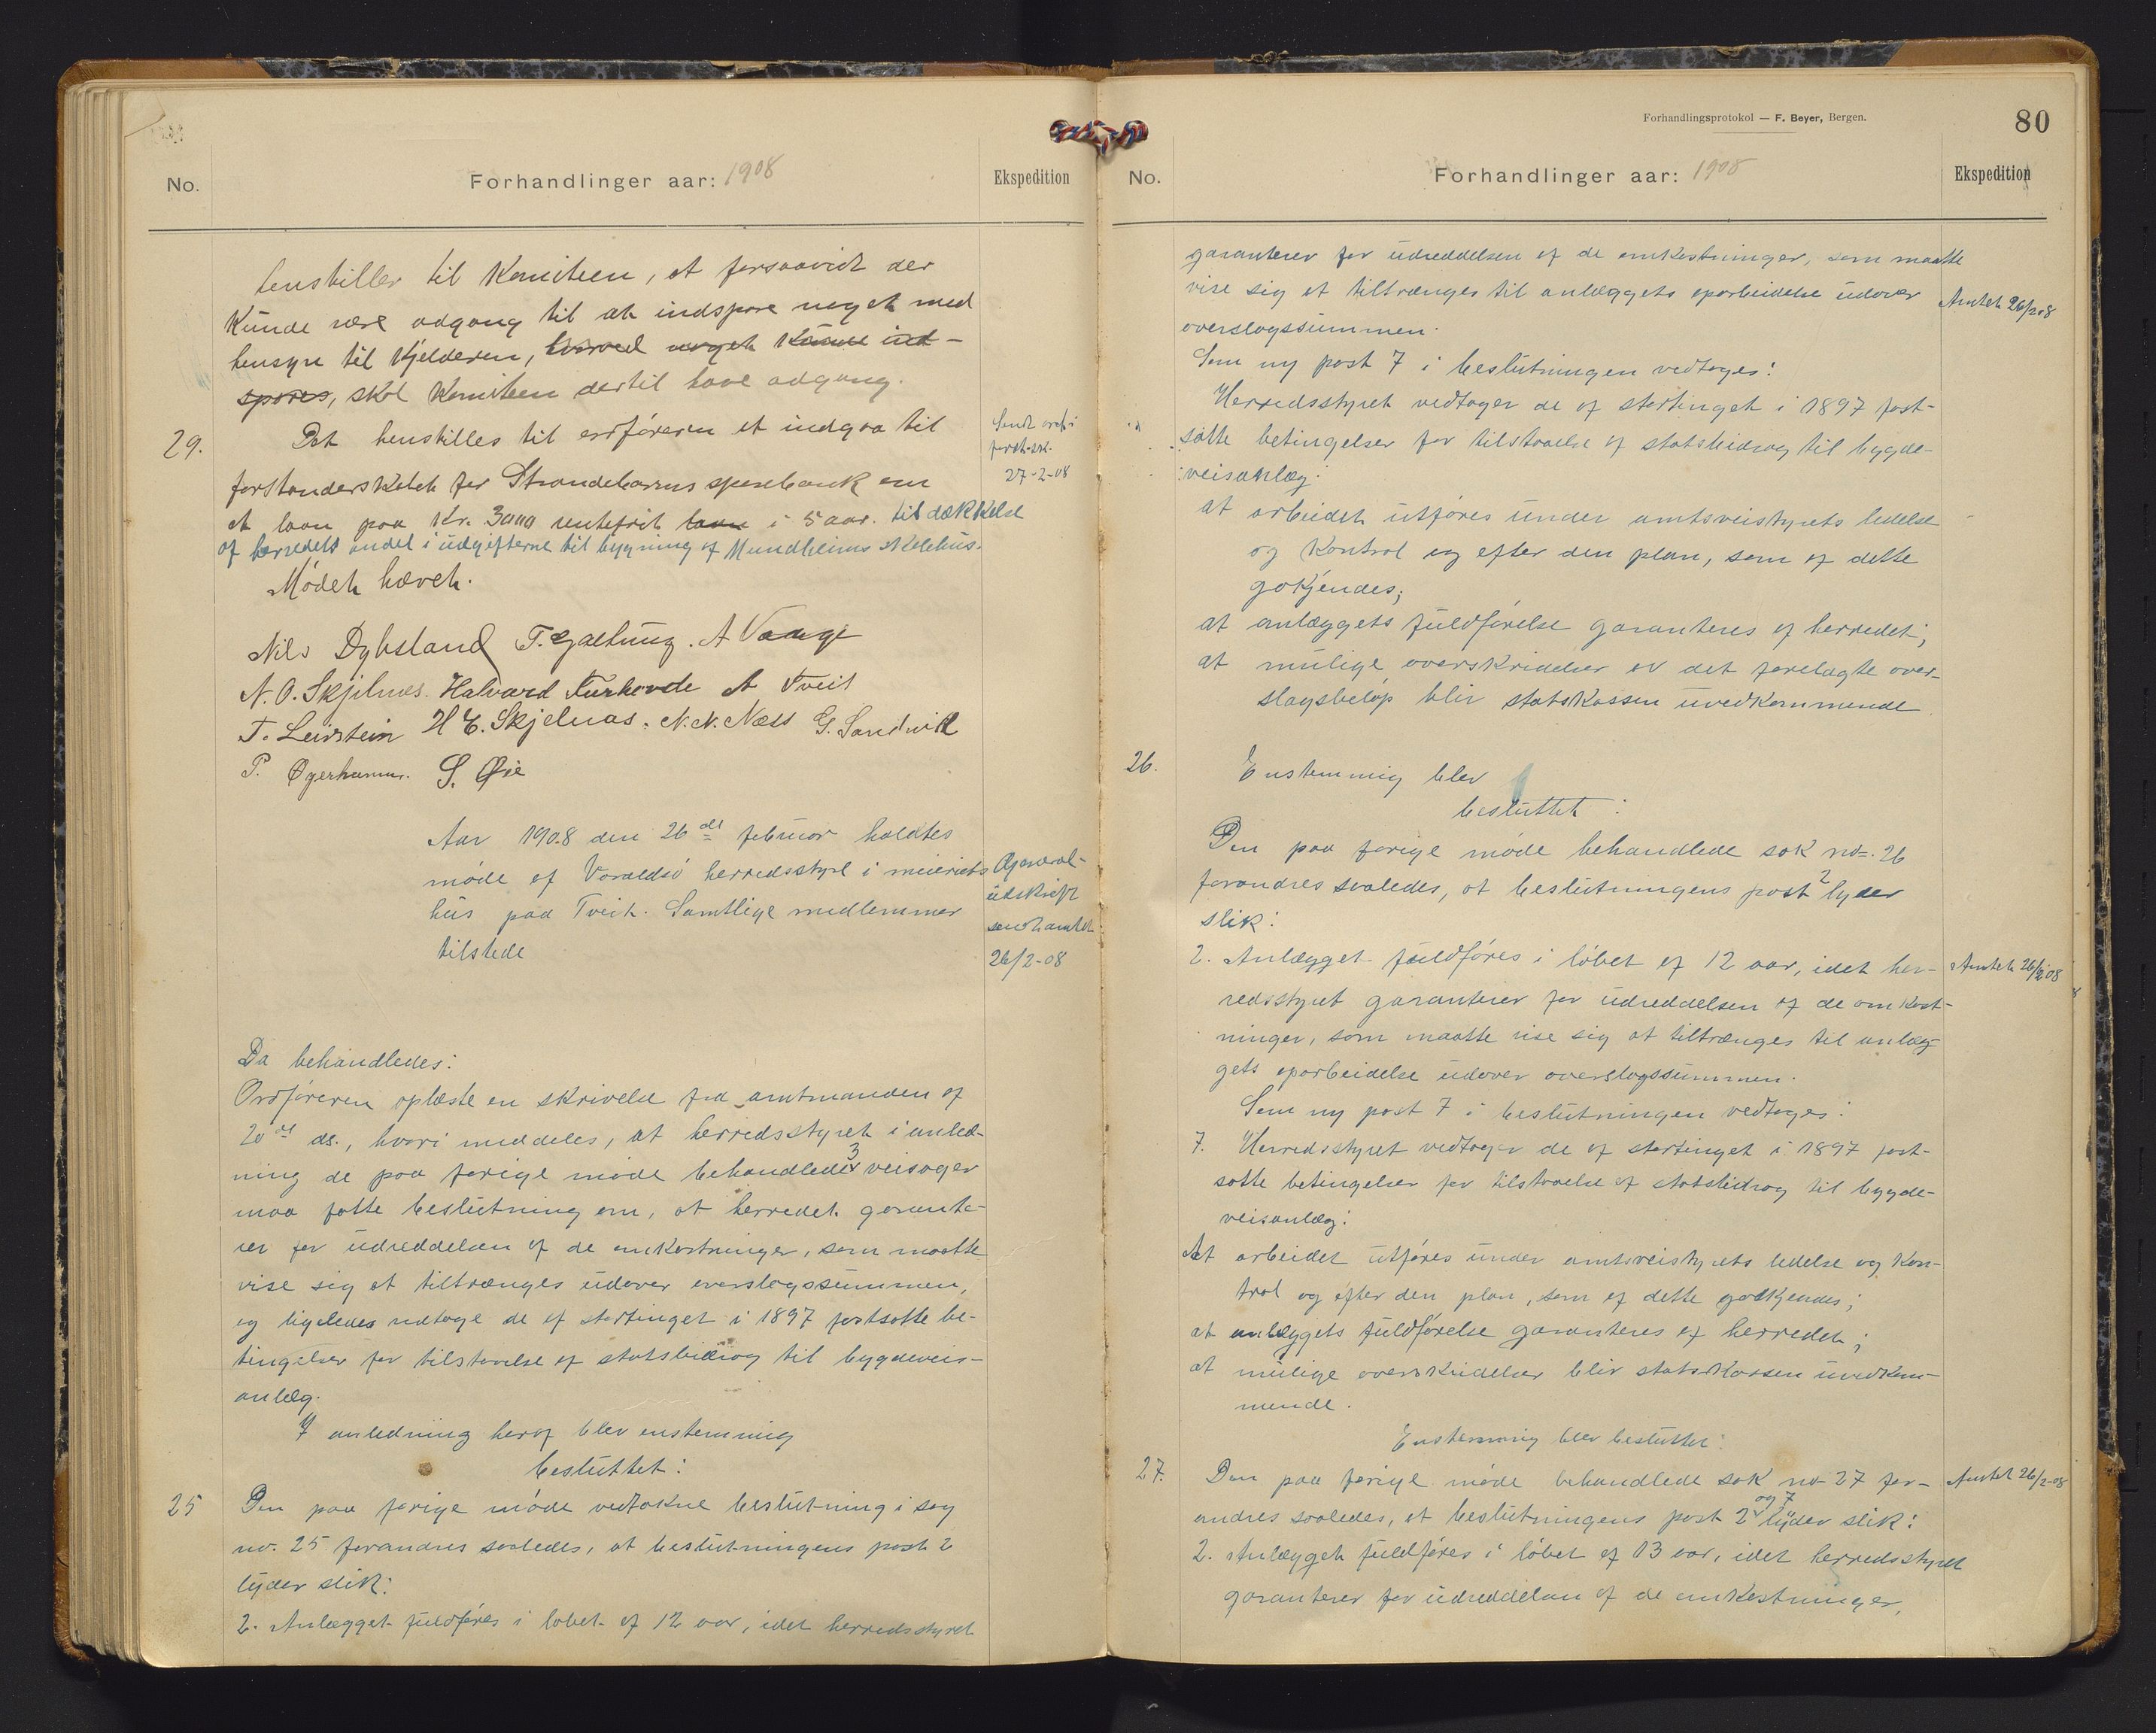 No.
Forhandlinger aar: 1908
Ekspedition
henstiller til Komiteen, at forsaavidt der
Kunde være adgang til at indspare noget med
hensyn til Kjelderen, hvorved noget Kunde ind-
spares, skal Komiteen dertil have adgang.
29.
Det henstilles til ordføreren at indgaa til
forstanderskabet for Strandebarms sparebank om
et laan paa Kr. 3000 rentefrit laan i 5 aar. til dækkelse
af herredets andel i udgifterne til bygning af Mundheims skolehus.
Mødet hævet.
27-2-08
Nils Dybsland T. Gjætung. A Vaage
N. O. Skjelnes. Halvard Turhovde A Tveit
T. Leirstein H E. Skjelnas. N. N. Næss G. Sandvik
P. Øyerhamn. S. Øie
Aar 1908 den 26de februar holdtes
møde af Varaldsø herredsstyre i meieriets
hus paa Tveit. Samtlige medlemmer
tilstede
General-
udskrift
sendt amtet
26/2-08
Da behandledes:
Ordføreren oplæste en skrivelse fra amtmanden af
20de ds., hvori meddeles, at herredsstyret i anled-
ning de paa forige møde behandlede 3 veisager
maa fatte beslutning om, at herredet garante-
rer for udreddelsen af de omkostninger, som maatte
vise sig at tiltrænges udover overslagssummen,
og ligeledes vedtage de af stortinget i 1897 fastsatte be-
tingelser for tilstaaelse af statsbidrag til bygdeveis-
anlæg.
I anledning heraf blev enstemmig
besluttet:
25
Den paa forige møde vedtakne beslutning i sag
no. 25 forandres saaledes, at beslutningens post 2
lyder slik:
2. Anlægget fuldføres i løbet af 12 aar, idet herredsstyret
Forhandlingsprotokol — F. Beyer, Bergen.
80
No.
Forhandlinger aar: 1908
Ekspedition
garanterer for udreddelsen af de omkostninger, som maatte
vise sig at tiltrænges til anlæggets oparbeidelse udover
overslagssummen.
Amtet 26/2 08
Som ny post 7 i beslutningen vedtages:
Herredsstyret vedtager de af stortinget i 1897 fast-
satte betingelser for tilstaaelse af statsbidrag til bygde-
veisanlæg:
at arbeidet utføres under amtsveistyrets ledelse
og Kontrol og efter den plan, som af dette
gokjendes;
at anlæggets fuldførelse garanteres af herredet;
at mulige overskridelser av det forelagte over-
slagsbeløp blir statskassen uvedkommende
26.
Enstemmig blev
besluttet:
Den paa forige møde behandlede sak no. 26
forandres saaledes, at beslutningens post 2 lyder
slik:
2. Anlægget fuldføres i løbet af 12 aar, idet her-
redsstyret garanterer for udreddelsen af de omkost-
ninger, som maatte vise sig at tiltrænges til anlæg-
gets oparbeidelse udover overslagssummen.
Amtet 26/2 08
Som ny post 7 i beslutningen vedtages:
7. Herredsstyret vedtager de af stortinget i 1897 fast-
satte betingelser for tilstaaelse af statsbidrag til bygde-
veisanlæg:
At arbeidet utføres under amtsveistyrets ledelse og Kon-
trol og efter den plan, som af dette godkjendes;
at anlæggets fuldførelse garanteres af herredet;
at mulige overskridelser blir statskassen uvedkom-
mende.
Enstemmig blev besluttet:
27.
Den paa forige møde behandlede sak no 27 for-
andres saaledes, at beslutningens post 2 og 7 lyder slik:
2. Anlægget fuldføres i løbet af 13 aar, idet herredsstyret
garanterer for udreddelsen af de omkostninger,
Amtet 26/2-08